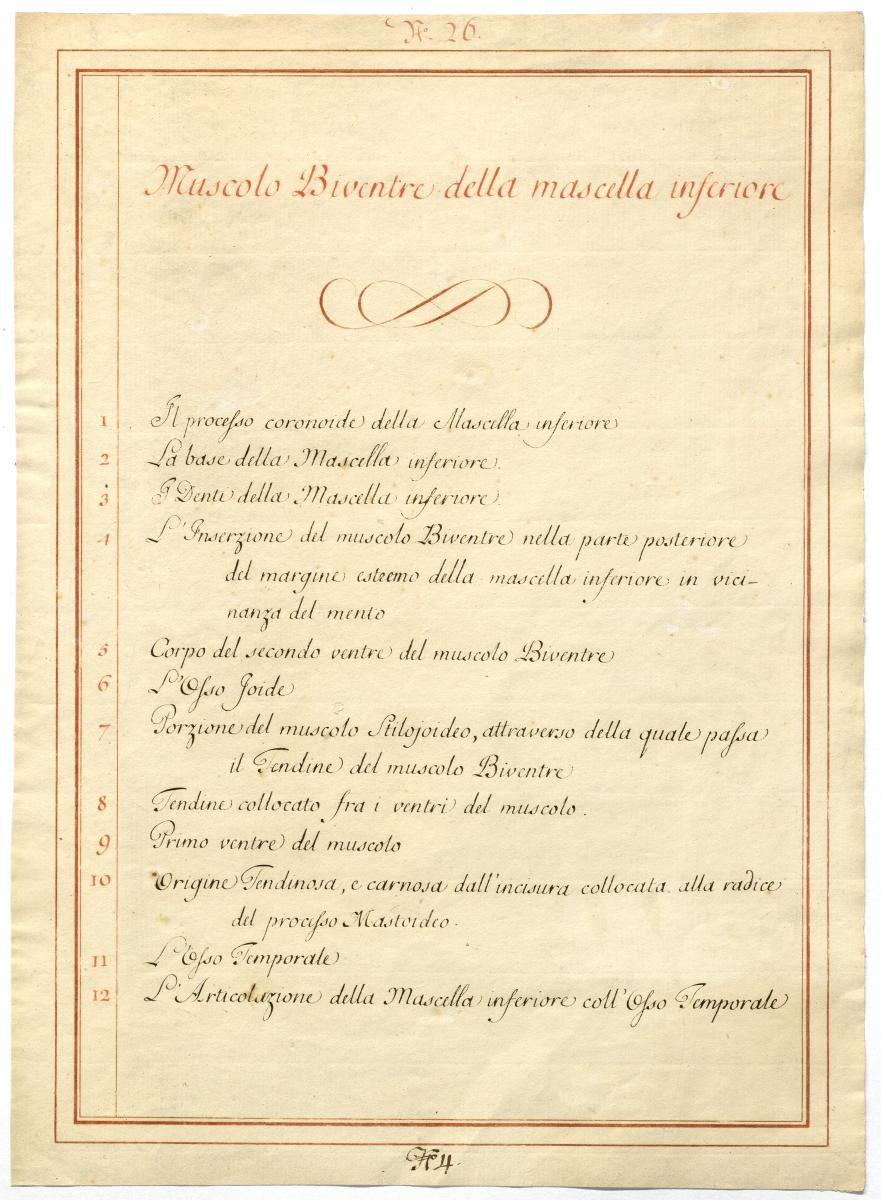 N.° 26.
Muscolo Biventre della mascella inferiore
1 Il processo coronoide della Mascella inferiore
2 La base della Mascella inferiore.
3 I Denti della Mascella inferiore.
4 L'Inserzione del muscolo Biventre nella parte posteriore
del margine estremo della mascella inferiore in vici-
nanza del mento
5 Corpo del secondo ventre del muscolo Biventre
6 L'Osso Joide
7 Porzione del muscolo Stilojoideo, attraverso della quale passa
il Tendine del muscolo Biventre
8 Tendine collocato fra i ventri del muscolo.
9 Primo ventre del muscolo
10 Origine Tendinosa, e carnosa dall'incisura collocata alla radice
del processo Mastoideo.
11 L'Osso Temporale
12 L'Articolazione della Mascella inferiore coll'Osso Temporale
4.